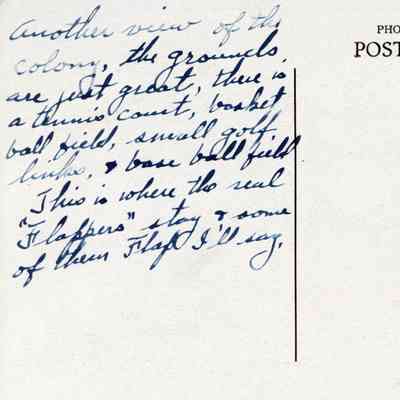 Another view of the
colony, the grounds,
are just great, there is
a tennis court, basket
ball field, small golf
links, & base ball field
"This is where the real
"Flappers" stay & some
of them Flap I'll say.
PHO
POST